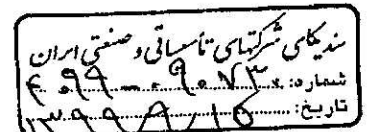 سندیکای شرکتهای تأسیساتی و صنعتی ایران
شماره: ۴۰۹۹-۰۹۰۷۳۰
تاریخ: ۱۳۹۹/۹/۱۵